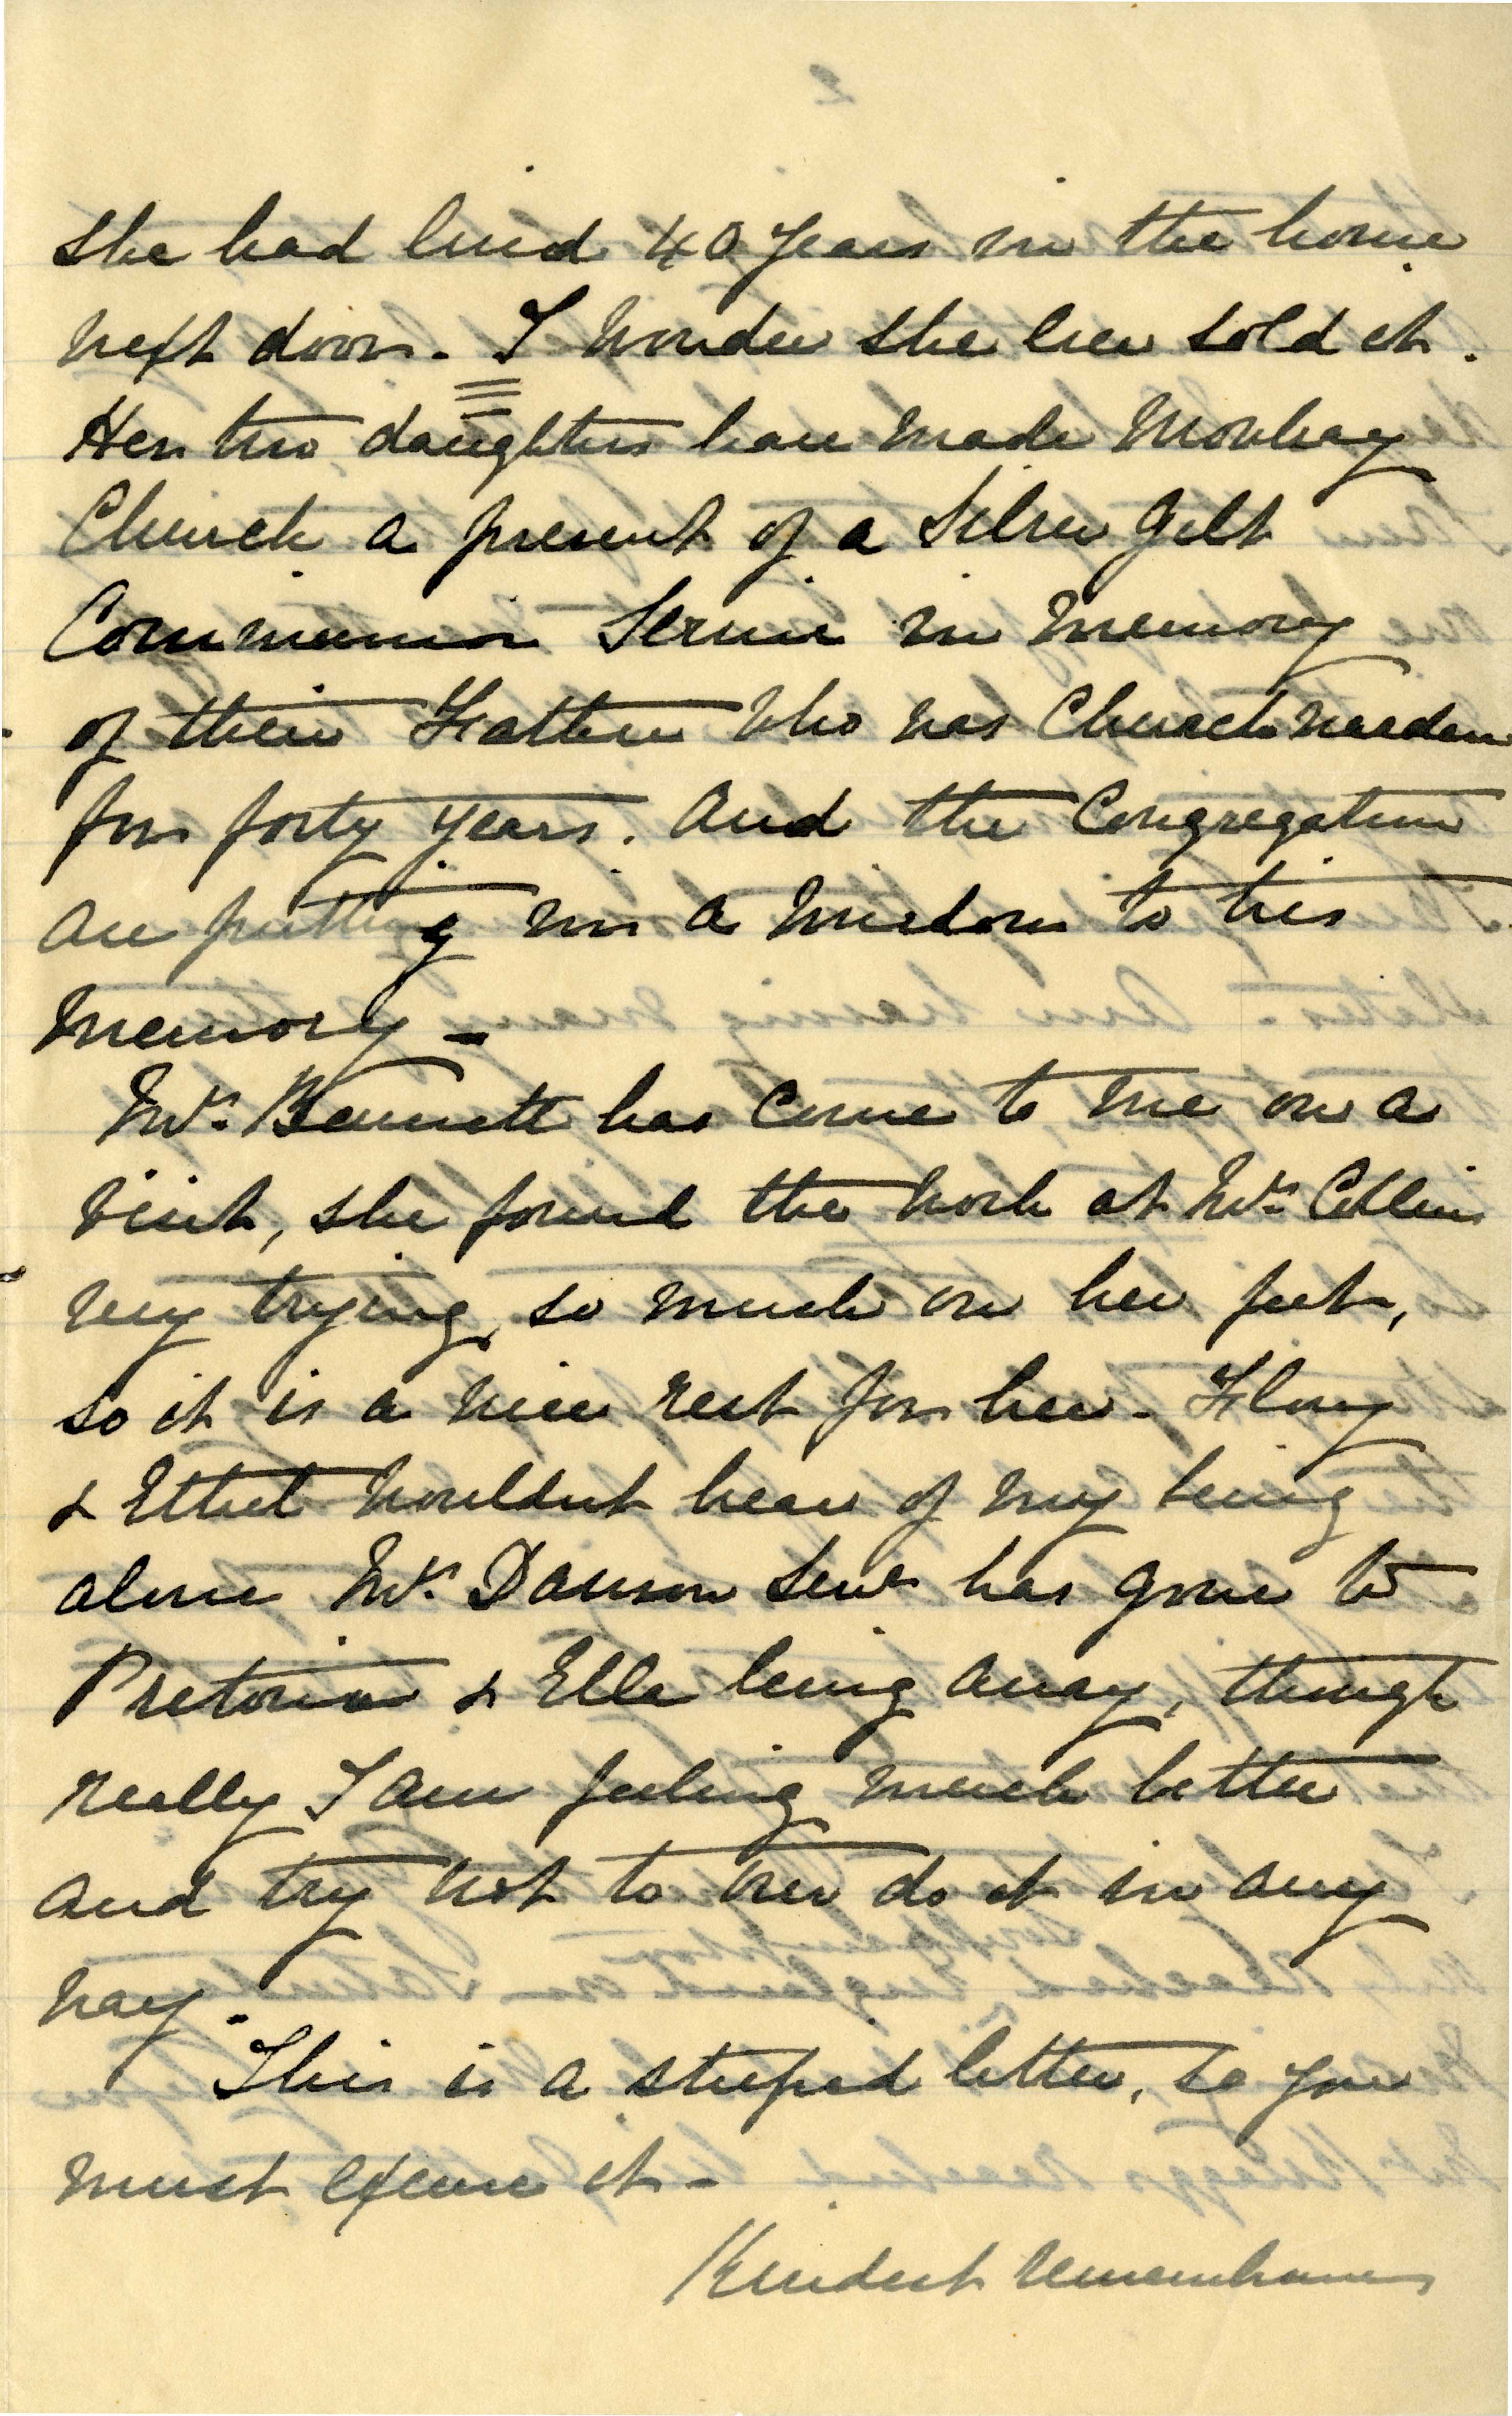 she had lived 40 years in the house
next door. I wonder she ever sold it.
Her two daughters have made Mowbray
Church a present of a Silver Gilt
Communion Service in memory
of their Father who was Churchwarden
for forty years. And the Congregation
are putting in a window to his
memory -
Mrs. Bennett has come to me on a
visit, she found the work at Mrs. Collins
very trying, so much on her feet,
so it is a nice rest for her - Flory
& Ethel wouldn't hear of my being
alone Mrs. Dawson Senr has gone to
Pretoria & Ella being away, though
really I am feeling much better
and try not to over do it in any
way.
This is a stupid letter, so you
must excuse it -
Kindest remembrances